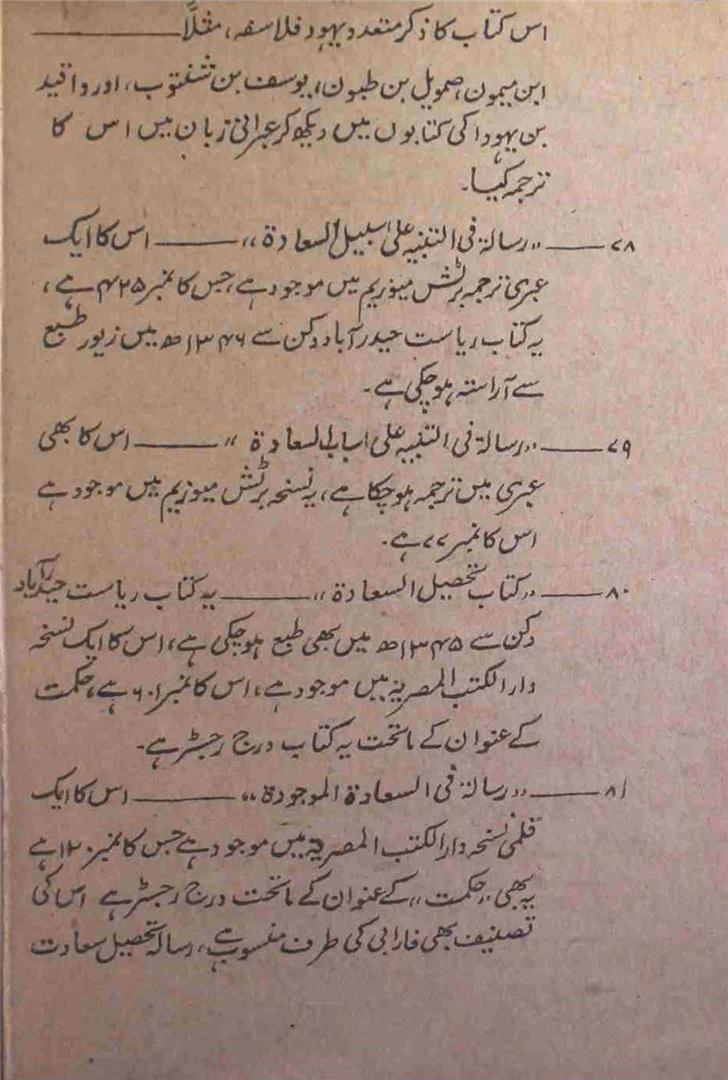 اس کتاب کا ذکر متعدد یہود فلاسفہ، مثلاً ————
ابن میمون، صموئیل بن طبون، یوسف بن شفتوب، اور واقید
بن یہودا کی کتابوں میں دیکھ کر عبرانی زبان میں اس کا
ترجمہ کیا۔
۷۸ —— ,,رسالۃ فی التنبیہ علی سبیل السعادۃ،، —— اس کا ایک
عبری ترجمہ برٹش میوزیم میں موجود ہے، جس کا نمبر ۴۲۵ ہے،
یہ کتاب ریاست حیدرآباد دکن سے ۱۳۴۶ھ میں زیور طبع
سے آراستہ ہو چکی ہے۔
۷۹ —— ,,رسالۃ فی التنبیہ علی اسباب السعادۃ،، —— اس کا بھی
عبری میں ترجمہ ہو چکا ہے، یہ نسخہ برٹش میوزیم میں موجود ہے
اس کا نمبر ۷۷ ہے۔
۸۰ —— ,,کتاب تحصیل السعادۃ،، —— یہ کتاب ریاست حیدرآباد
دکن سے ۱۳۴۵ھ میں بھی طبع ہو چکی ہے، اس کا ایک نسخہ
دار الکتب المصریہ میں موجود ہے، اس کا نمبر ۶۰۱ ہے، حکمت
کے عنوان کے ماتحت یہ کتاب درج رجسٹر ہے۔
۸۱ —— ,,رسالۃ فی السعادۃ الموجودۃ،، —— اس کا ایک
قلمی نسخہ دار الکتب المصریہ میں موجود ہے جس کا نمبر ۱۲۰ ہے
یہ بھی ,,حکمت،، کے عنوان کے ماتحت درج رجسٹر ہے اس کی
تصنیف بھی فارابی کی طرف منسوب ہے، رسالہ تحصیل سعادت